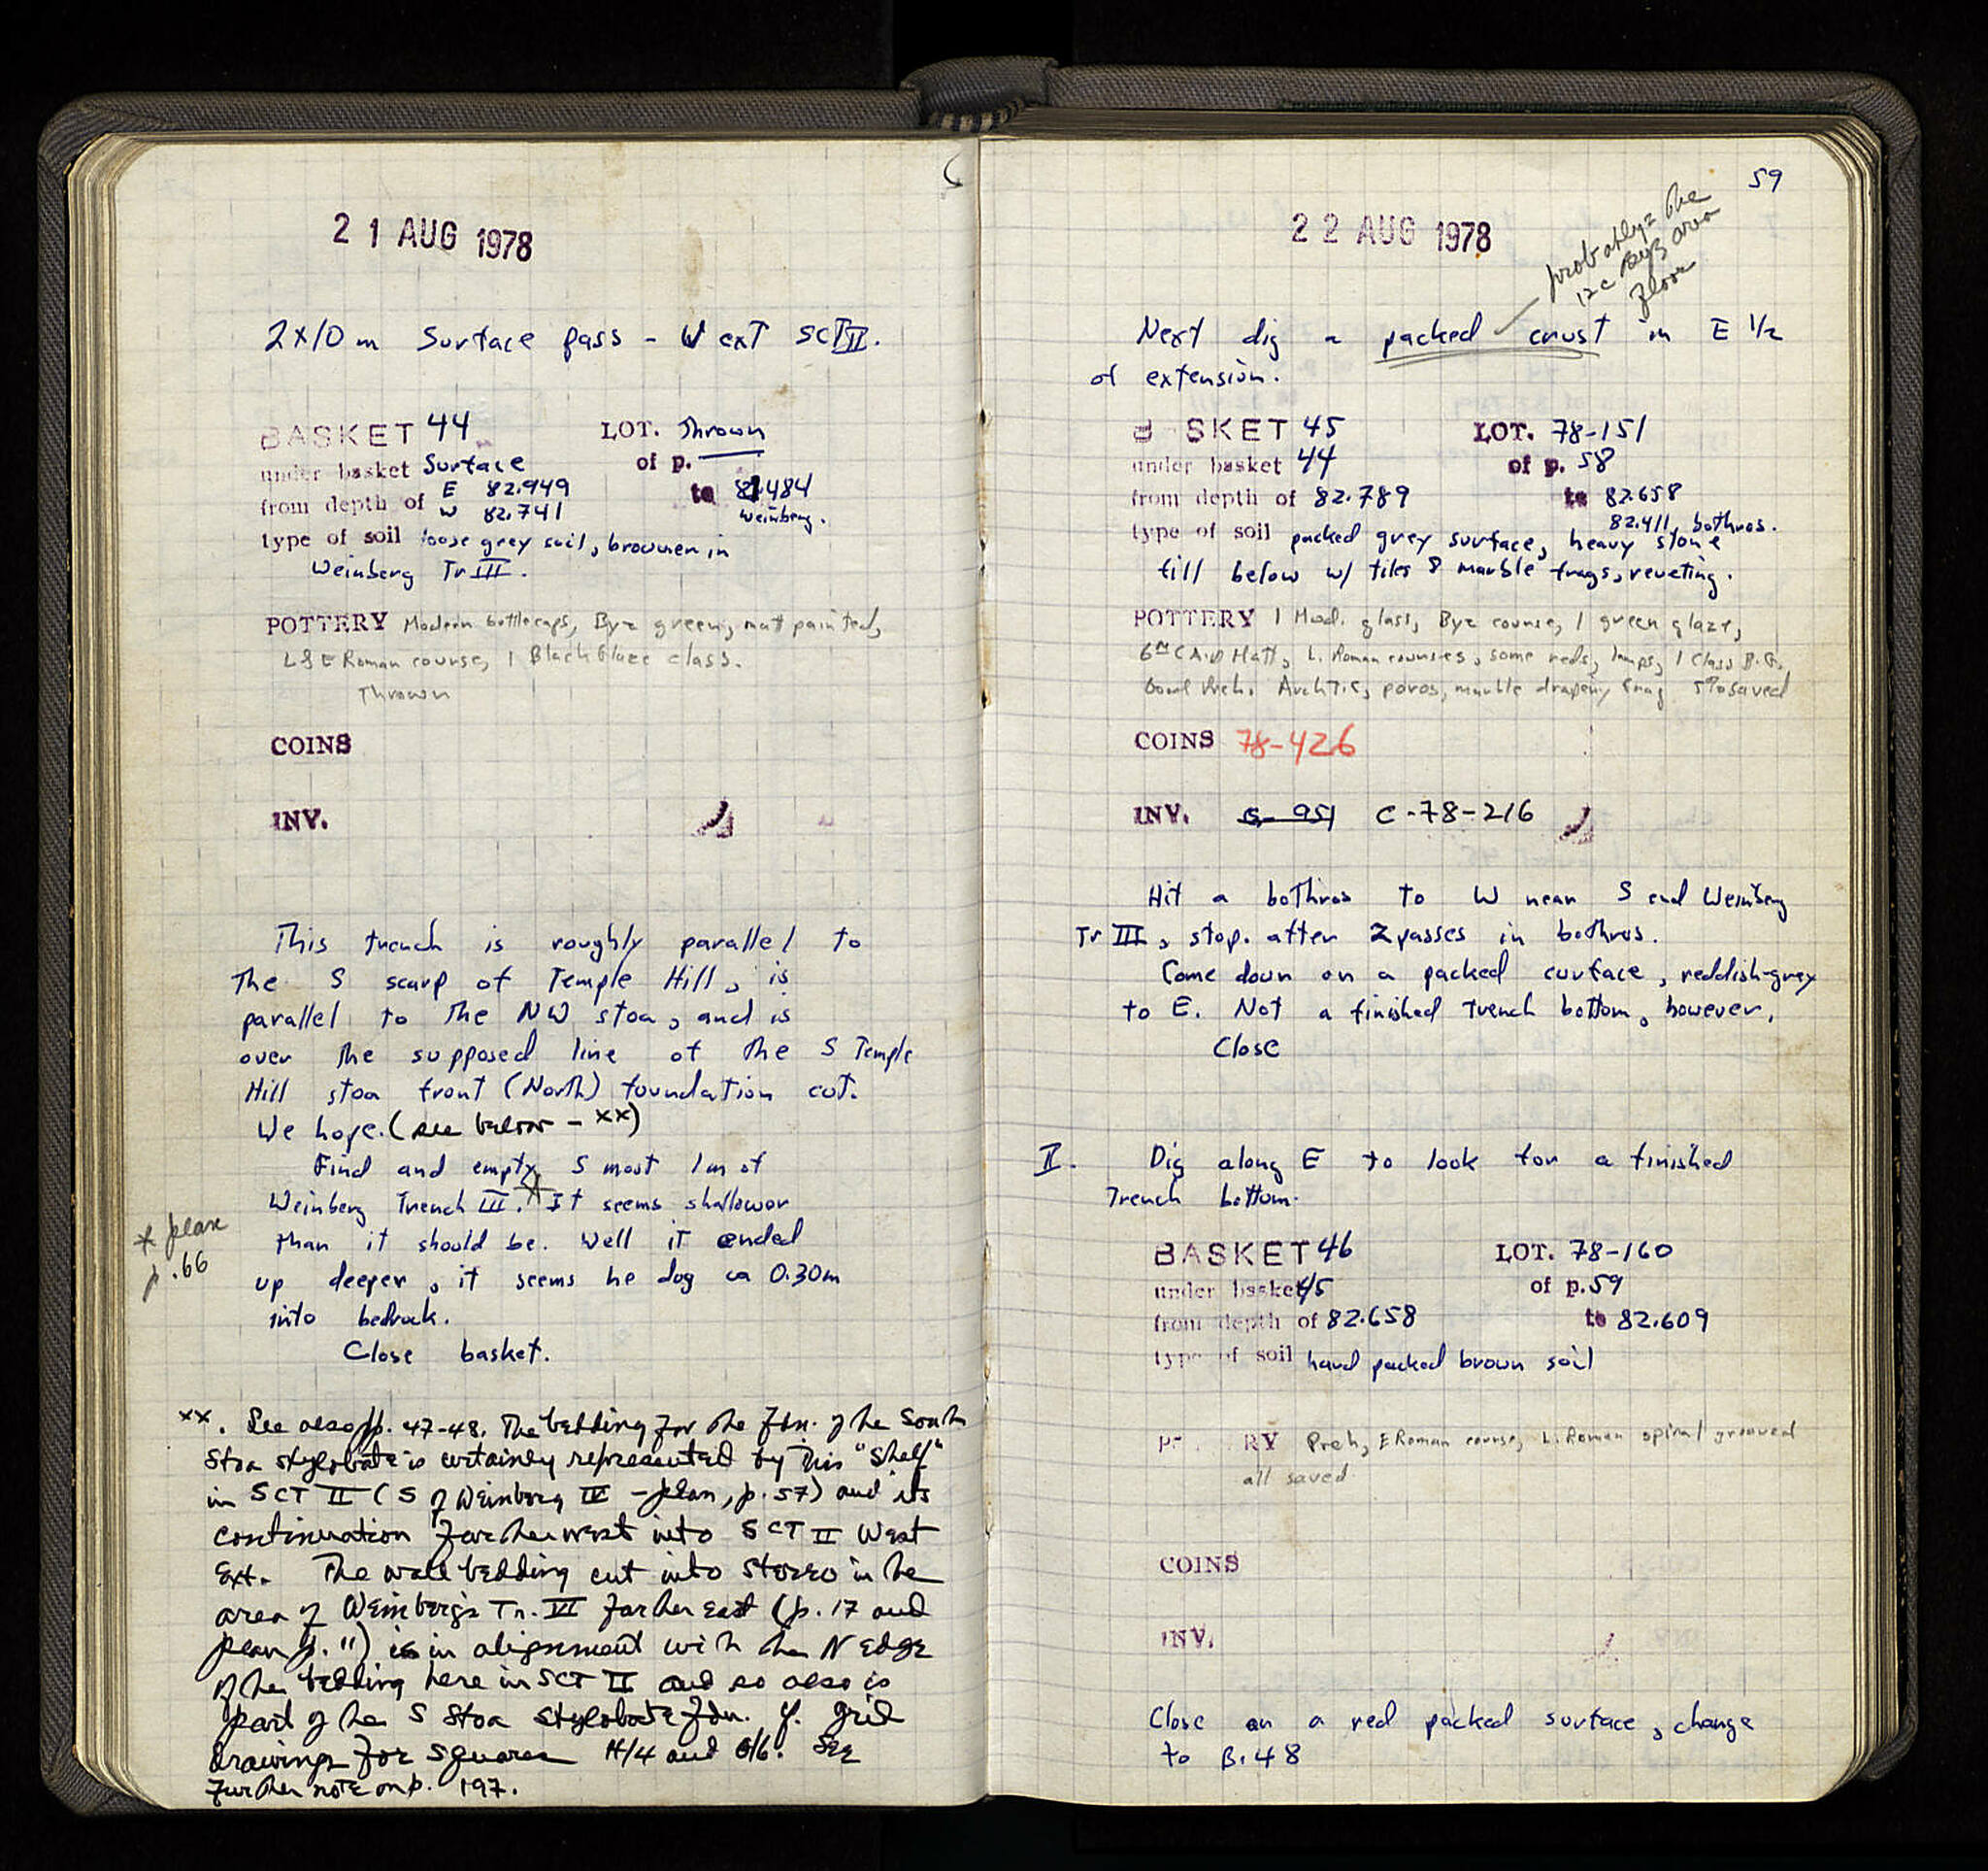 21 AUG 1978
2x10m Surface pass - W ext SCT II.
BASKET 44 LOT. Thrown
under basket Surface of p.
from depth of E 82.949 W 82.741 to 81.484 Weinberg.
type of soil loose grey soil, browner in
Weinberg Tr III.
POTTERY Modern bottlecaps, Byz green, mat painted,
L & E Roman course, 1 Black Glaze class.
Thrown
COINS
INV.
This trench is roughly parallel to
the S scarp of Temple Hill, is
parallel to the NW stoa, and is
over the supposed line of the S Temple
Hill stoa front (North) foundation cut.
We hope. (see below - xx)
Find and empty S most 1m of
Weinberg Trench III.* It seems shallower
than it should be. Well it ended
up deeper, it seems he dug ca 0.30m
into bedrock.
Close basket.
* plan
p. 66
xx. See also pp. 47-48. The bedding for the fdn. of the South
Stoa stylobate is certainly represented by this "shelf"
in SCT II (S of Weinberg III - plan, p. 57) and its
continuation farther west into SCT II West
Ext. The wall bedding cut into stereo in the
area of Weinberg's Tr. VI farther east (p. 17 and
plan p. 11) is in alignment with the N edge
of the bedding here in SCT II and so also is
part of the S Stoa stylobate fdn. cf. grid
drawings for squares H/4 and G/6. See
further note on p. 197.
59
22 AUG 1978
probably = the
12c Byz area
floor
Next dig a packed crust in E 1/2
of extension.
B SKET 45 LOT. 78-151
under basket 44 of p. 58
from depth of 82.789 to 82.658
82.411, bothros.
type of soil packed grey surface, heavy stone
fill below w/ tiles & marble frags, reveting.
POTTERY 1 Mod. glass, Byz course, 1 green glaze,
6th C A.D Matt, L. Roman courses, some reds, lamps, 1 Class B.G.
Preh. Arch T.C, poros, marble drapery frag 5% saved
COINS 78-426
INV. C-78-216
Hit a bothros to W near S end Weinberg
Tr III, stop. after 2 passes in bothros.
Come down on a packed surface, reddish-grey
to E. Not a finished trench bottom, however,
Close
II. Dig along E to look for a finished
trench bottom.
BASKET 46 LOT. 78-160
under basket 45 of p. 59
from depth of 82.658 to 82.609
type of soil hard packed brown soil
P RY Preh, E Roman course, L. Roman spiral grooved
all saved
COINS
INV.
Close on a red packed surface, change
to B. 48